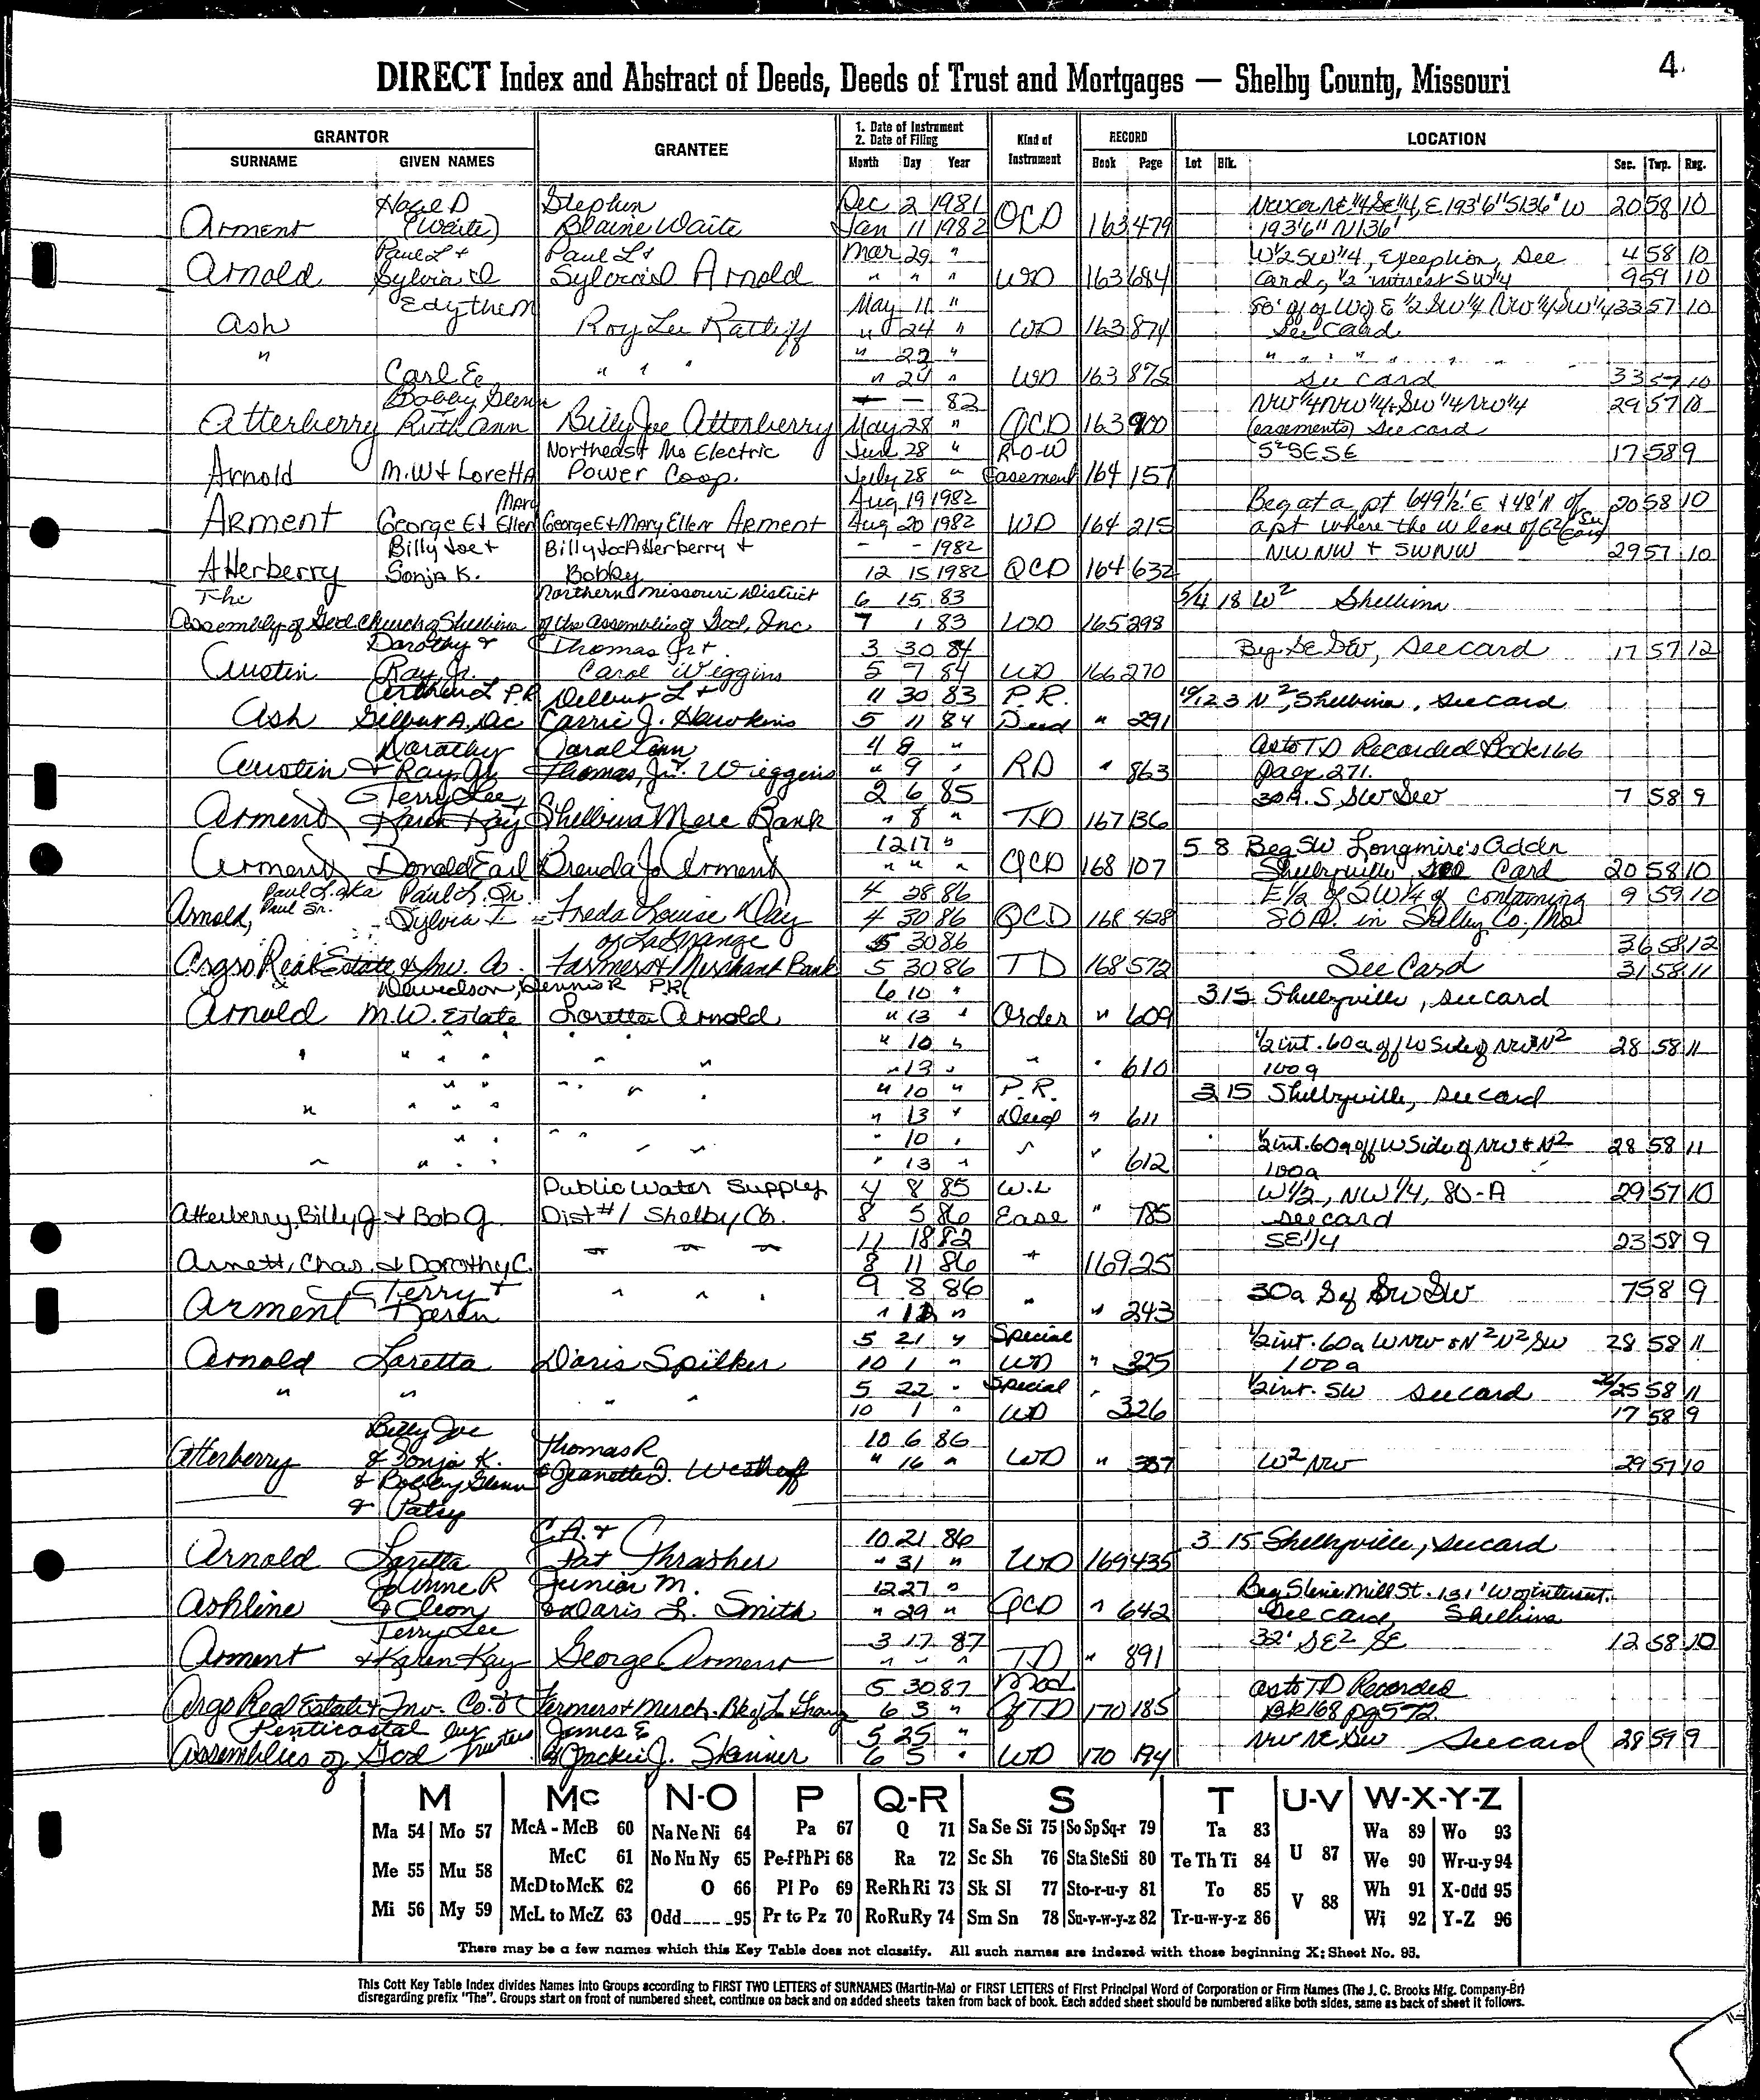 4.
DIRECT Index and Abstract of Deeds, Deeds of Trust and Mortgages — Shelby County, Missouri
GRANTOR GRANTEE 1. Date of Instrument 2. Date of Filing Kind of Instrument RECORD LOCATION
SURNAME GIVEN NAMES Month Day Year Book Page Lot Blk. Sec. Twp. Rng.
Stephen Dec 2 1981 NE 1/4 SE 1/4, E 193'6" S136' W 20 58 10
Arment (Waite) Blaine Waite Jan 11 1982 QCD 163 479 193'6" N136'
Paul L + Paul L + Mar 29 " W 1/2 SW 1/4, Exception, See 4 58 10
Arnold Sylvia D Sylvia D Arnold " " " WD 163 684 Card, 1/2 interest SW 1/4 9 59 10
Edythe M May 11 " 33 57 10
Ash Roy Lee Ratliff " 24 " WD 163 874 See Card
" " 22 "
Carl E. " " " " 24 " WD 163 875 See Card 33 57 10
Bobby Glenn — — 82 NW 1/4 NW 1/4 + SW 1/4 NW 1/4 29 57 10
Atterberry Ruth Ann Billy Joe Atterberry May 28 " QCD 163 900 (easements) See card
Northeast Mo Electric June 28 " R-O-W S2 SE SE 17 58 9
Arnold M.W + Loretta Power Coop. July 28 " Easement 164 157
Mary Aug 19 1982 Beg at a pt 649 1/2' E + 48' N of 20 58 10
Arment George E + Ellen George E + Mary Ellen Arment Aug 20 1982 WD 164 215 a pt where the W line of E2 See Card
Billy Joe + Billy Joe Atterberry + - - 1982 NW NW + SW NW 29 57 10
Atterberry Sonja K. Bobby 12 15 1982 QCD 164 632
The Northern Missouri District 6 15 83 5/4 18 W2 Shelbina
Assembly of God Church of Shelbina of the Assemblies of God, Inc 7 1 83 WD 165 298
Dorothy + Thomas Jr + 3 30 84 Beg SE SW, See card 17 57 12
Austin Ray, Jr. Carol Wiggins 5 7 84 WD 166 270
P.R. Delbert L + 11 30 83 P.R. 12 3 N2, Shelbina, See card
Ash Gilbert A. Dec Carrie J. Hawkins 5 11 84 Deed " 291
Dorothy Carol Ann 4 8 " As to TD Recorded Book 166
Austin + Ray Jr. Thomas, Jr. Wieggins " 9 " RD " 863 page 271.
Terry Lee + 2 6 85 30A. S, SW SW 7 58 9
Arment Karen Kay Shelbina Merc Bank " 8 " TD 167 136
12 17 " 5 8 Beg SW Longmire's Addn
Arment Donald Earl Brenda Jo Arment " " " QCD 168 107 Shelbyville See Card 20 58 10
Paul L. aka Paul L. Sr. 4 28 86 E 1/2 of SW 1/4 of containing 9 59 10
Arnold, Paul Sr. Sylvia L Freda Louise Day 4 30 86 QCD 168 428 80 A. in Shelby Co., Mo
of LaGrange 5 30 86 36 58 12
Argso Real Estate & Inv. Co. Farmers + Merchant Bank 5 30 86 TD 168 572 See Card 31 58 11
Davidson, Dennis R P.R. 6 10 " 3 15 Shelbyville, See card
Arnold M.W. Estate Loretta Arnold " 13 " Order " 609
" " " " " " 10 " 1/2 int. 60a off W Side of NW + N2 28 58 11
" " " 13 " " " 610 100a
" " " " " 10 " P.R. 3 15 Shelbyville, See card
" " " " " 13 " Deed " 611
" " " " " 10 " 1/2 int. 60a off W Side of NW & N2 28 58 11
" " " " " 13 " " " 612 100a
Public Water Supply 4 8 85 W.L W 1/2, NW 1/4, 80-A 29 57 10
Atterberry, Billy J. + Bob G. Dist #1 Shelby Co. 8 5 86 Ease " 785 See card
" " " 11 18 82 SE 1/4 23 58 9
Arnett, Chas. & Dorothy C. 8 11 86 " 169 25
Terry + " " " 9 8 86 30a S of SW SW 7 58 9
Arment Karen " " " " 243
5 21 " Special 1/2 int. 60a W NW & N2 N2 SW 28 58 11
Arnold Loretta Doris Spilker 10 1 " WD " 325 100a
" " " " 5 22 " Special " 1/2 int. SW See card 26/25 58 11
10 1 " WD 326 17 58 9
Billy Joe Thomas R 10 6 86
Atterberry & Sonja K. & Jeanette J. Westhoff " 16 " WD " 387 W2 NW 29 57 10
& Bobby Glenn
& Patsy
C.A. + 10 21 86 3 15 Shelbyville, See card
Arnold Loretta Pat Thrasher " 31 " WD 169 435
JoAnne R Junior M. 12 27 " Beg S line Mill St. 131' W of intersect.
Ashline & Cleon & Doris L. Smith " 29 " QCD " 642 See card, Shelbina
Terry Lee 3 17 87 32' SE2 SE 12 58 10
Arment + Karen Kay George Arment " " " TD " 891
5 30 87 Mod As to TD Recorded
Argo Real Estate + Inv. Co. & Farmers + Merch. Bk of La Grang 6 3 " of TD 170 185 Bk 168 pg 572
Penticostal by James E 5 25 " NW NE SW See card 28 59 9
Assemblies of God Trustees & Jackie J. Skinner 6 5 " WD 170 194
M Mc N-O P Q-R S T U-V W-X-Y-Z
Ma 54 Mo 57 McA - McB 60 Na Ne Ni 64 Pa 67 Q 71 Sa Se Si 75 So Sp Sq-r 79 Ta 83 Wa 89 Wo 93
Me 55 Mu 58 McC 61 No Nu Ny 65 Pe-f Ph Pi 68 Ra 72 Sc Sh 76 Sta Ste Sti 80 Te Th Ti 84 U 87 We 90 Wr-u-y 94
McD to McK 62 O 66 Pl Po 69 Re Rh Ri 73 Sk Sl 77 Sto-r-u-y 81 To 85 Wh 91 X-Odd 95
Mi 56 My 59 McL to McZ 63 Odd 95 Pr to Pz 70 Ro Ru Ry 74 Sm Sn 78 Su-v-w-y-z 82 Tr-u-w-y-z 86 V 88 Wi 92 Y-Z 96
There may be a few names which this Key Table does not classify. All such names are indexed with those beginning X; Sheet No. 95.
This Cott Key Table Index divides Names into Groups according to FIRST TWO LETTERS of SURNAMES (Martin-Ma) or FIRST LETTERS of First Principal Word of Corporation or Firm Names (The J. C. Brooks Mfg. Company-Br)
disregarding prefix "The". Groups start on front of numbered sheet, continue on back and on added sheets taken from back of book. Each added sheet should be numbered alike both sides, same as back of sheet it follows.